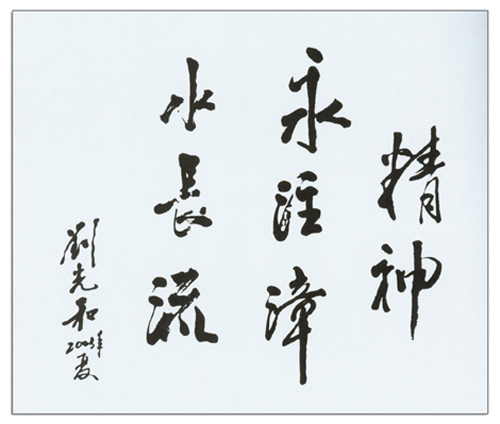 精神
永注漳
水長流
劉光和
2005年夏